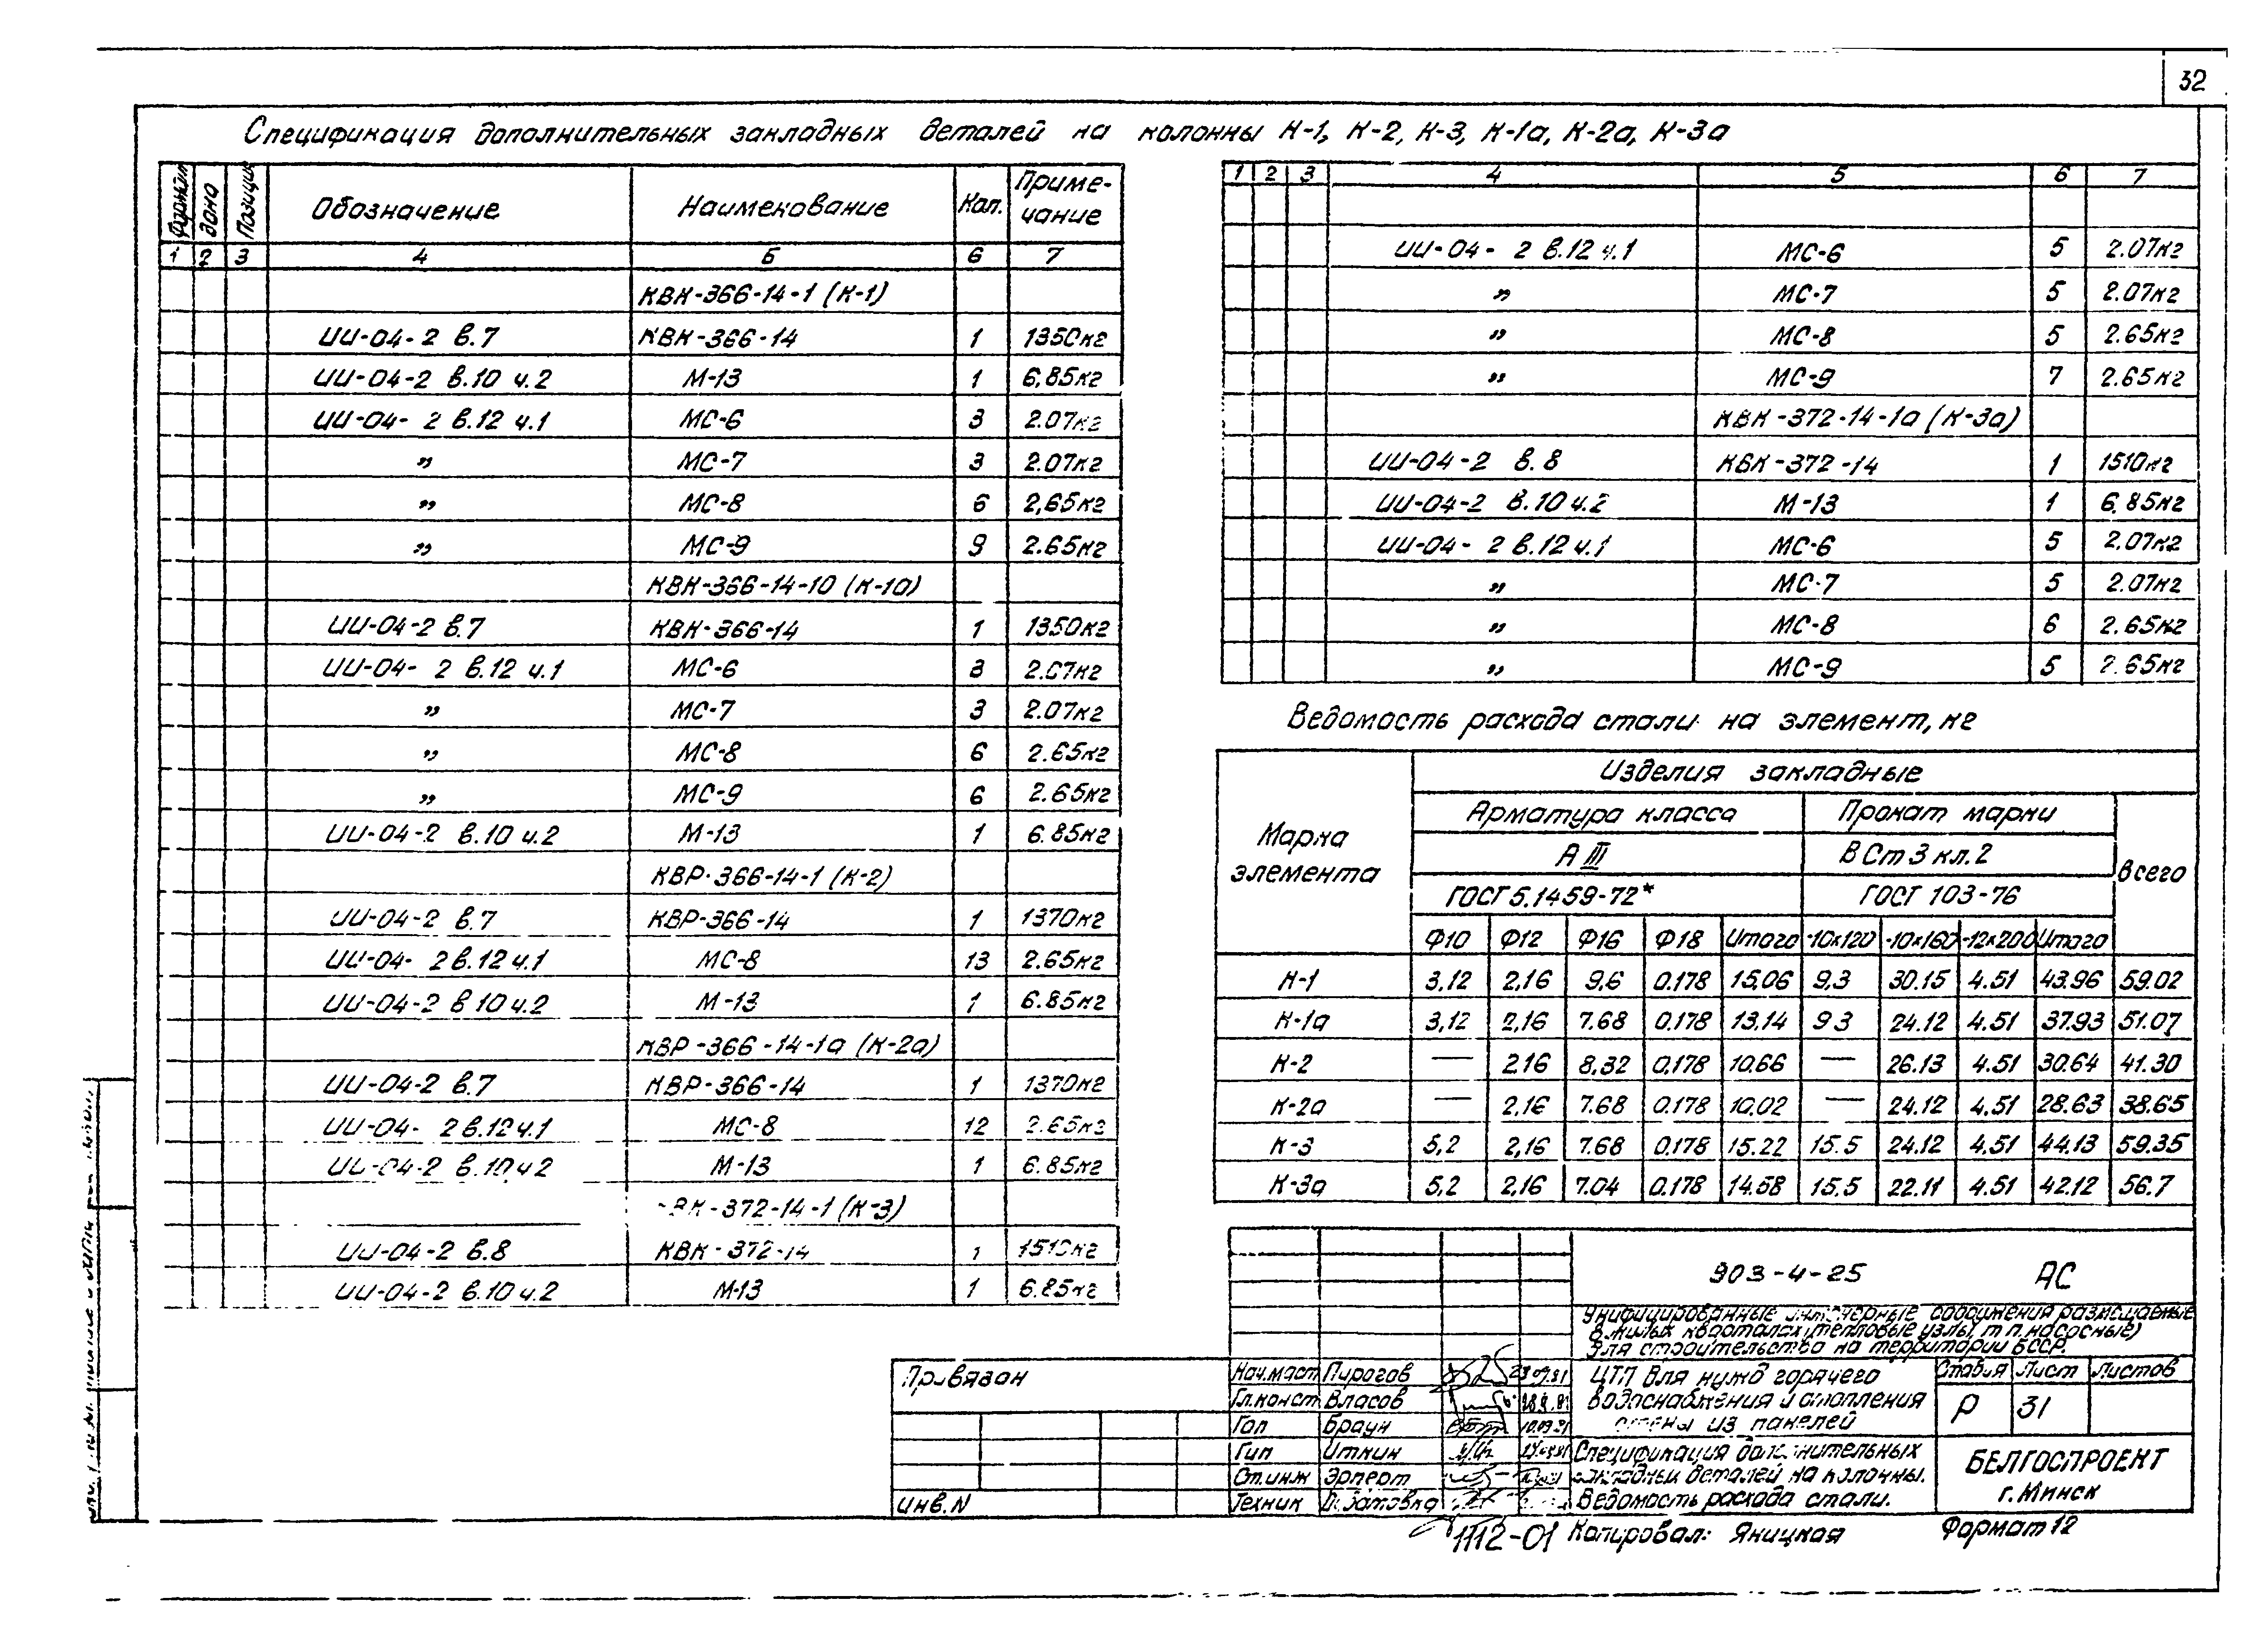 32
Спецификация дополнительных закладных деталей на колонны К-1, К-2, К-3, К-1а, К-2а, К-3а
Формат Зона Позиция Обозначение Наименование Кол. Приме-
чание
1 2 3 4 5 6 7
КВК-366-14-1 (К-1)
ИИ-04-2 в.7 КВК-366-14 1 1350кг
ИИ-04-2 в.10 ч.2 М-13 1 6,85кг
ИИ-04- 2 в.12 ч.1 МС-6 3 2.07кг
„ МС-7 3 2.07кг
„ МС-8 6 2,65кг
„ МС-9 9 2.65кг
КВК-366-14-10 (К-1а)
ИИ-04-2 в.7 КВК-366-14 1 1350кг
ИИ-04- 2 в.12 ч.1 МС-6 3 2.07кг
„ МС-7 3 2.07кг
„ МС-8 6 2.65кг
„ МС-9 6 2.65кг
ИИ-04-2 в.10 ч.2 М-13 1 6.85кг
КВР-366-14-1 (К-2)
ИИ-04-2 в.7 КВР-366-14 1 1370кг
ИИ-04- 2 в.12 ч.1 МС-8 13 2.65кг
ИИ-04-2 в 10 ч.2 М-13 1 6.85кг
КВР-366-14-1а (К-2а)
ИИ-04-2 в.7 КВР-366-14 1 1370кг
ИИ-04- 2 в.12 ч.1 МС-8 12 2.65кг
ИИ-04-2 в.10 ч 2 М-13 1 6.85кг
КВК-372-14-1 (К-3)
ИИ-04-2 в.8 КВК-372-14 1 1510кг
ИИ-04-2 в.10 ч.2 М-13 1 6.85кг
1 2 3 4 5 6 7
ИИ-04- 2 в.12 ч.1 МС-6 5 2.07кг
„ МС-7 5 2.07кг
„ МС-8 5 2.65кг
„ МС-9 7 2.65кг
КВК-372-14-1а (К-3а)
ИИ-04-2 в.8 КВК-372-14 1 1510кг
ИИ-04-2 в.10 ч.2 М-13 1 6.85кг
ИИ-04- 2 в.12 ч.1 МС-6 5 2,07кг
„ МС-7 5 2.07кг
„ МС-8 6 2.65кг
„ МС-9 5 2.65кг
Ведомость расхода стали на элемент, кг
Марка
элемента
Изделия закладные
Арматура класса Прокат марки
А III ВСт3 кл.2 всего
ГОСТ 5.1459-72* ГОСТ 103-76
Ф10 Ф12 Ф16 Ф18 Итого -10х120 -10х160 -12х200 Итого
К-1 3,12 2,16 9,6 0.178 15,06 9,3 30.15 4.51 43.96 59.02
К-1а 3,12 2,16 7.68 0,178 13,14 9 3 24.12 4.51 37.93 51.07
К-2 — 2.16 8,32 0,178 10.66 — 26.13 4.51 30.64 41.30
К-2а — 2,16 7.68 0.178 10,02 — 24.12 4.51 28.63 38.65
К-3 5,2 2,16 7.68 0,178 15.22 15.5 24.12 4.51 44.13 59.35
К-3а 5,2 2,16 7.04 0.178 14.58 15,5 22.11 4.51 42.12 56.7
903-4-25 АС
Унифицированные инженерные сооружения размещаемые
в жилых кварталах (тепловые узлы, тп, насосные)
для строительства на территории БССР.
Привязан
Инв.N
Нач.маст Пирогов
Гл.конст Власов
Гап Браун
Гип Иткин
Ст.инж Эрперт
Техник
ЦТП для нужд горячего
водоснабжения и отопления
стены из панелей
Стадия Лист Листов
Р 31
Спецификация дополнительных
закладных деталей на колонны.
Ведомость расхода стали.
БЕЛГОСПРОЕКТ
г.Минск
1112-01 Копировал: Яницкая Формат 12